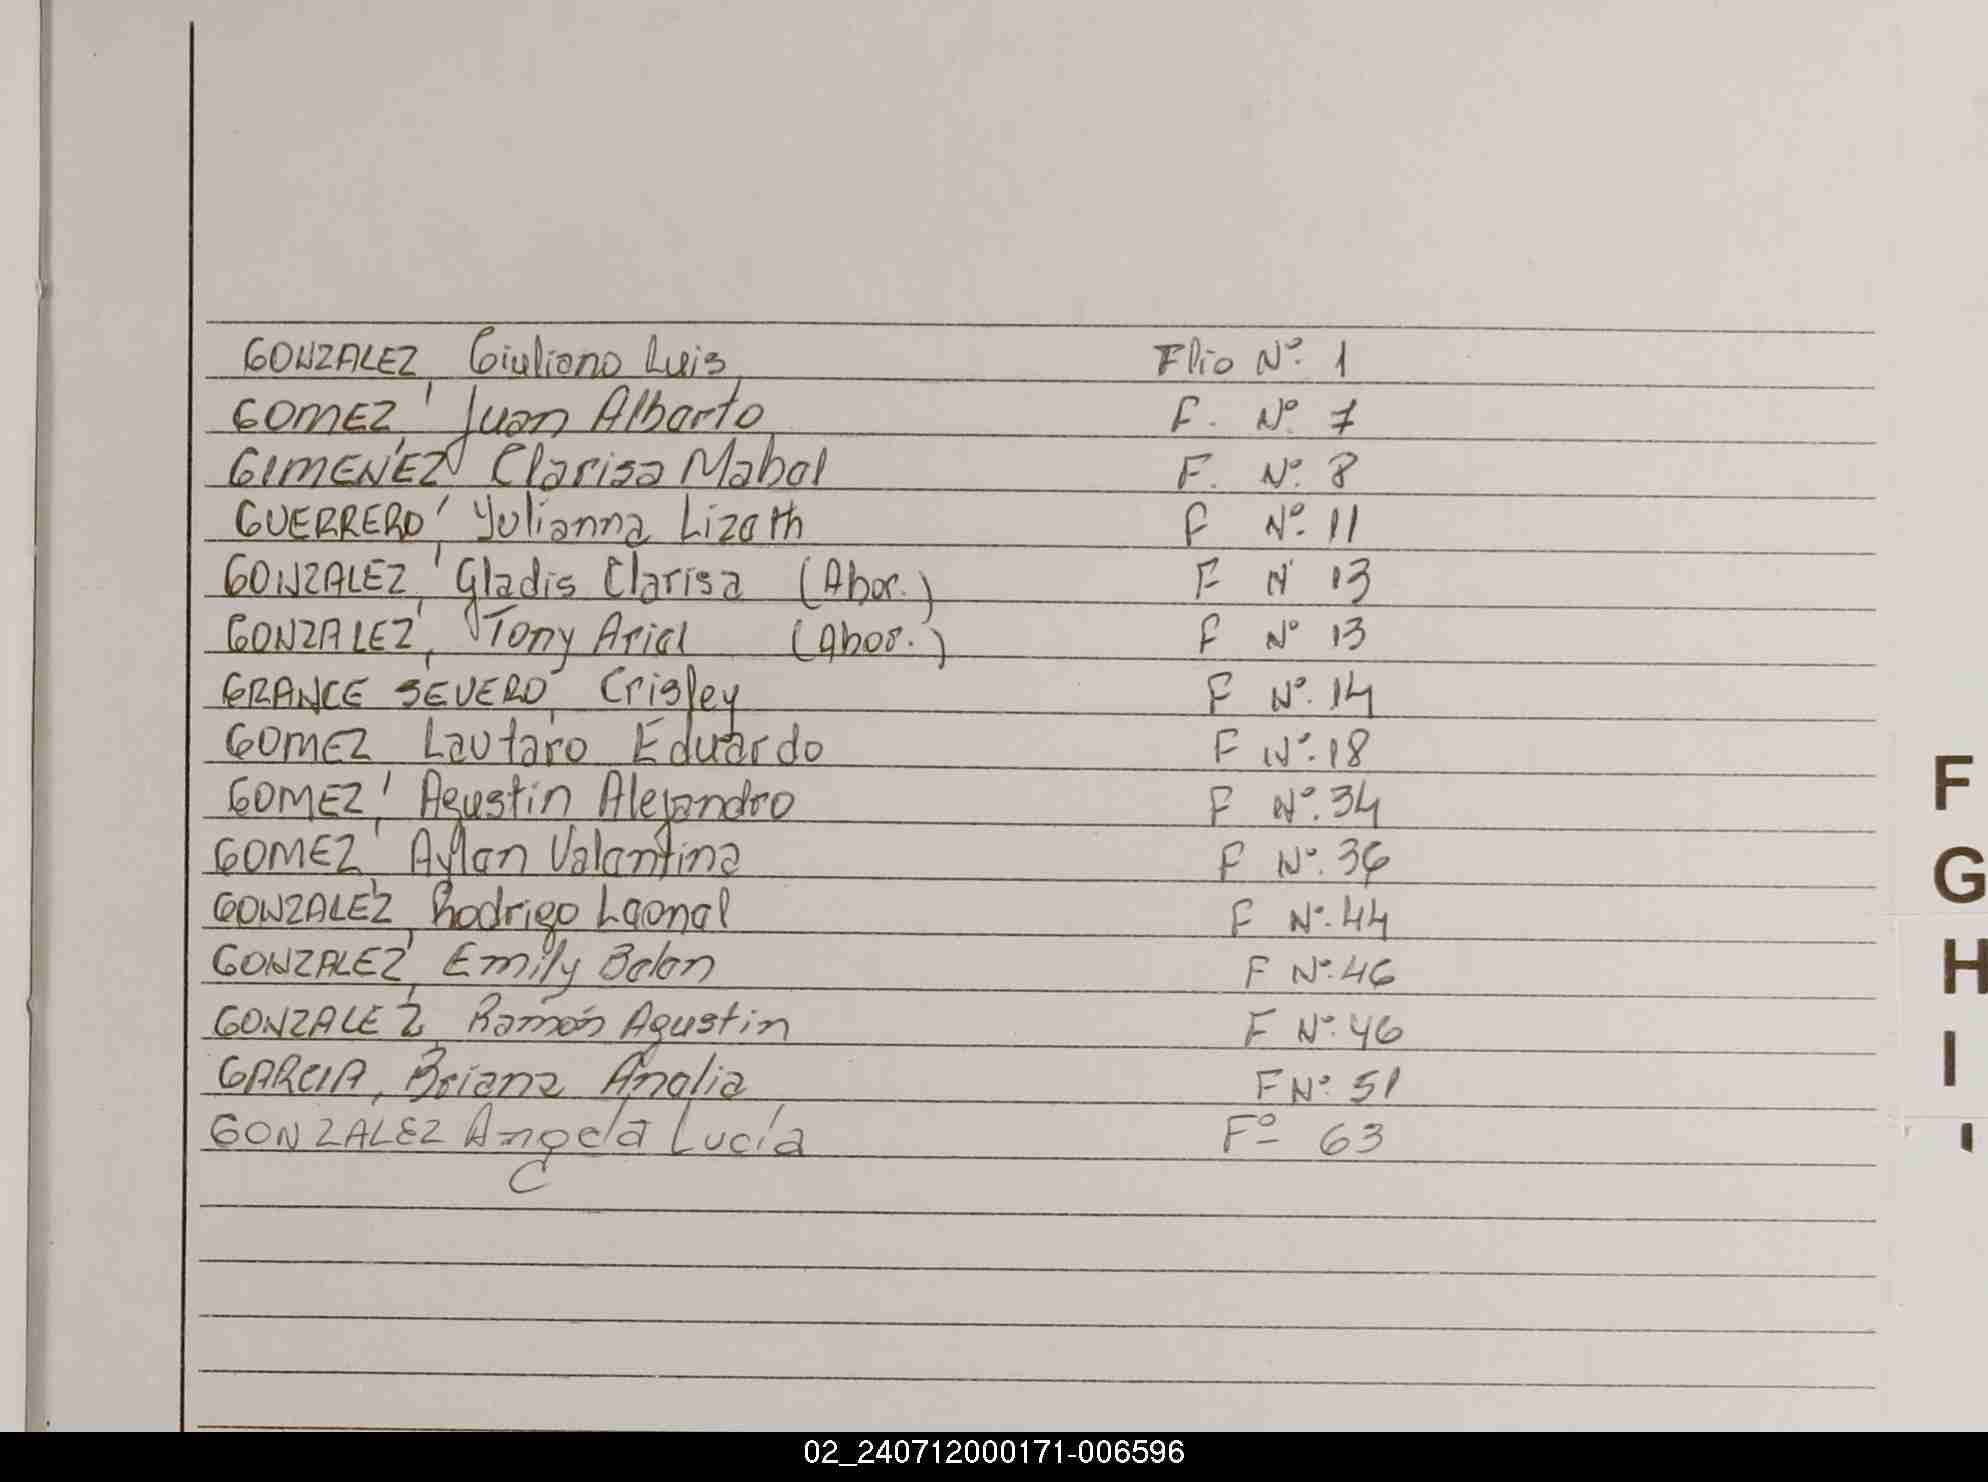 GONZALEZ, Giuliano Luis Flio Nº. 1
GOMEZ, Juan Alberto F. Nº 7
GIMENEZ, Clarisa Mabel F. Nº. 8
GUERRERO, Yulianna Lizeth F Nº. 11
GONZALEZ, Gladis Clarisa (Abor.) F N 13
GONZALEZ, Tony Ariel (Abor.) F Nº 13
GRANCE SEVERO, Crisley F Nº. 14
GOMEZ, Lautaro Eduardo F Nº. 18
GOMEZ, Agustin Alejandro F Nº. 34
GOMEZ, Aylen Valentina F Nº. 36
GONZALEZ, Rodrigo Leonel F Nº. 44
GONZALEZ, Emily Belen F Nº. 46
GONZALEZ, Ramón Agustin F Nº. 46
GARCIA, Briana Analia F Nº. 51
GONZALEZ Angela Lucía Fº 63
F
G
H
I
02_240712000171-006596